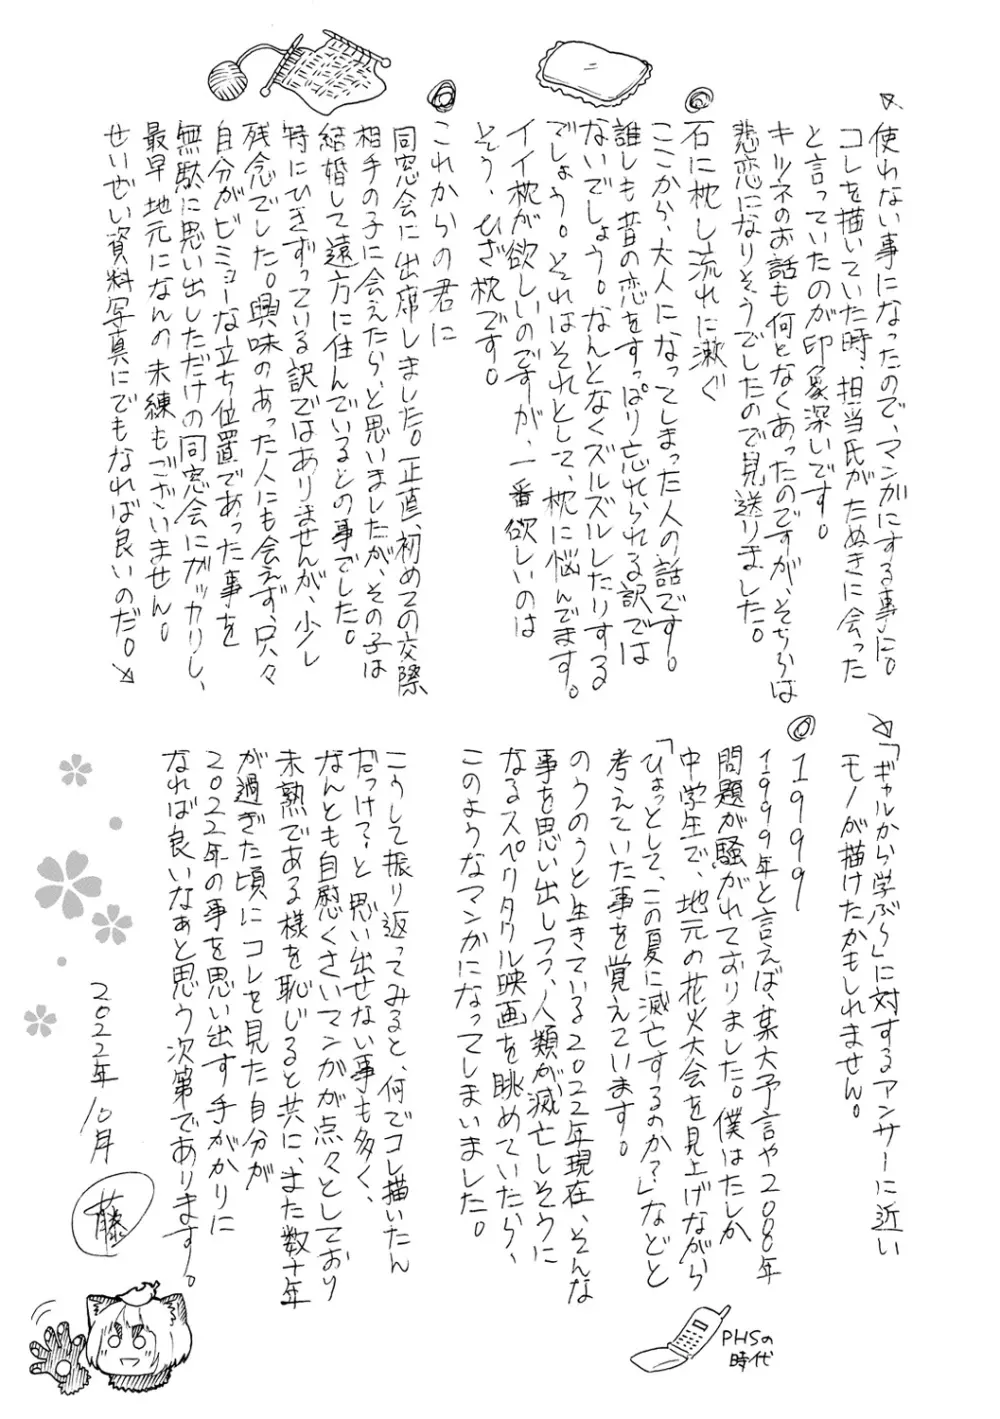 使わない事になったので、マンガにする事に。
コレを描いていた時、担当氏がたぬきに会った
と言っていたのが印象深いです。
キツネのお話も何となくあったのですが、そちらは
悲恋になりそうでしたので見送りました。
◎石に枕し流れに漱ぐ
ここから、大人になってしまった人の話です。
誰しも昔の恋をすっぱり忘れられる訳では
ないでしょう。なんとなくズルズルしたりする
でしょう。それはそれとして、枕に悩んでます。
イイ枕が欲しいのですが、一番欲しいのは
そう、ひざ枕です。
◎これからの君に
同窓会に出席しました。正直、初めての交際
相手の子に会えたら、と思いましたが、その子は
結婚して遠方に住んでいるとの事でした。
特にひきずっている訳ではありませんが、少し
残念でした。興味のあった人にも会えず、只々
自分がビミョーな立ち位置であった事を
無駄に思い出しただけの同窓会にガッカリし、
最早地元になんの未練もございません。
せいぜい資料写真にでもなれば良いのだ。
「ギャルから学ぶら」に対するアンサーに近い
モノが描けたかもしれません。
◎1999
1999年と言えば、某大予言や2000年
問題が騒がれておりました。僕はたしか
中学生で、地元の花火大会を見上げながら
「ひょっとして、この夏に滅亡するのか?」などと
考えていた事を覚えています。
のうのうと生きている2022年現在、そんな
事を思い出しつつ、人類が滅亡しそうに
なるスペクタクル映画を眺めていたら、
このようなマンガになってしまいました。
こうして振り返ってみると、何でコレ描いたん
だっけ?と思い出せない事も多く、
なんとも自慰くさいマンガが点々としており
未熟である様を恥じると共に、また数十年
が過ぎた頃にコレを見た自分が
2022年の事を思い出す手がかりに
なれば良いなぁと思う次第であります。
2022年10月
藤
PHSの
時代